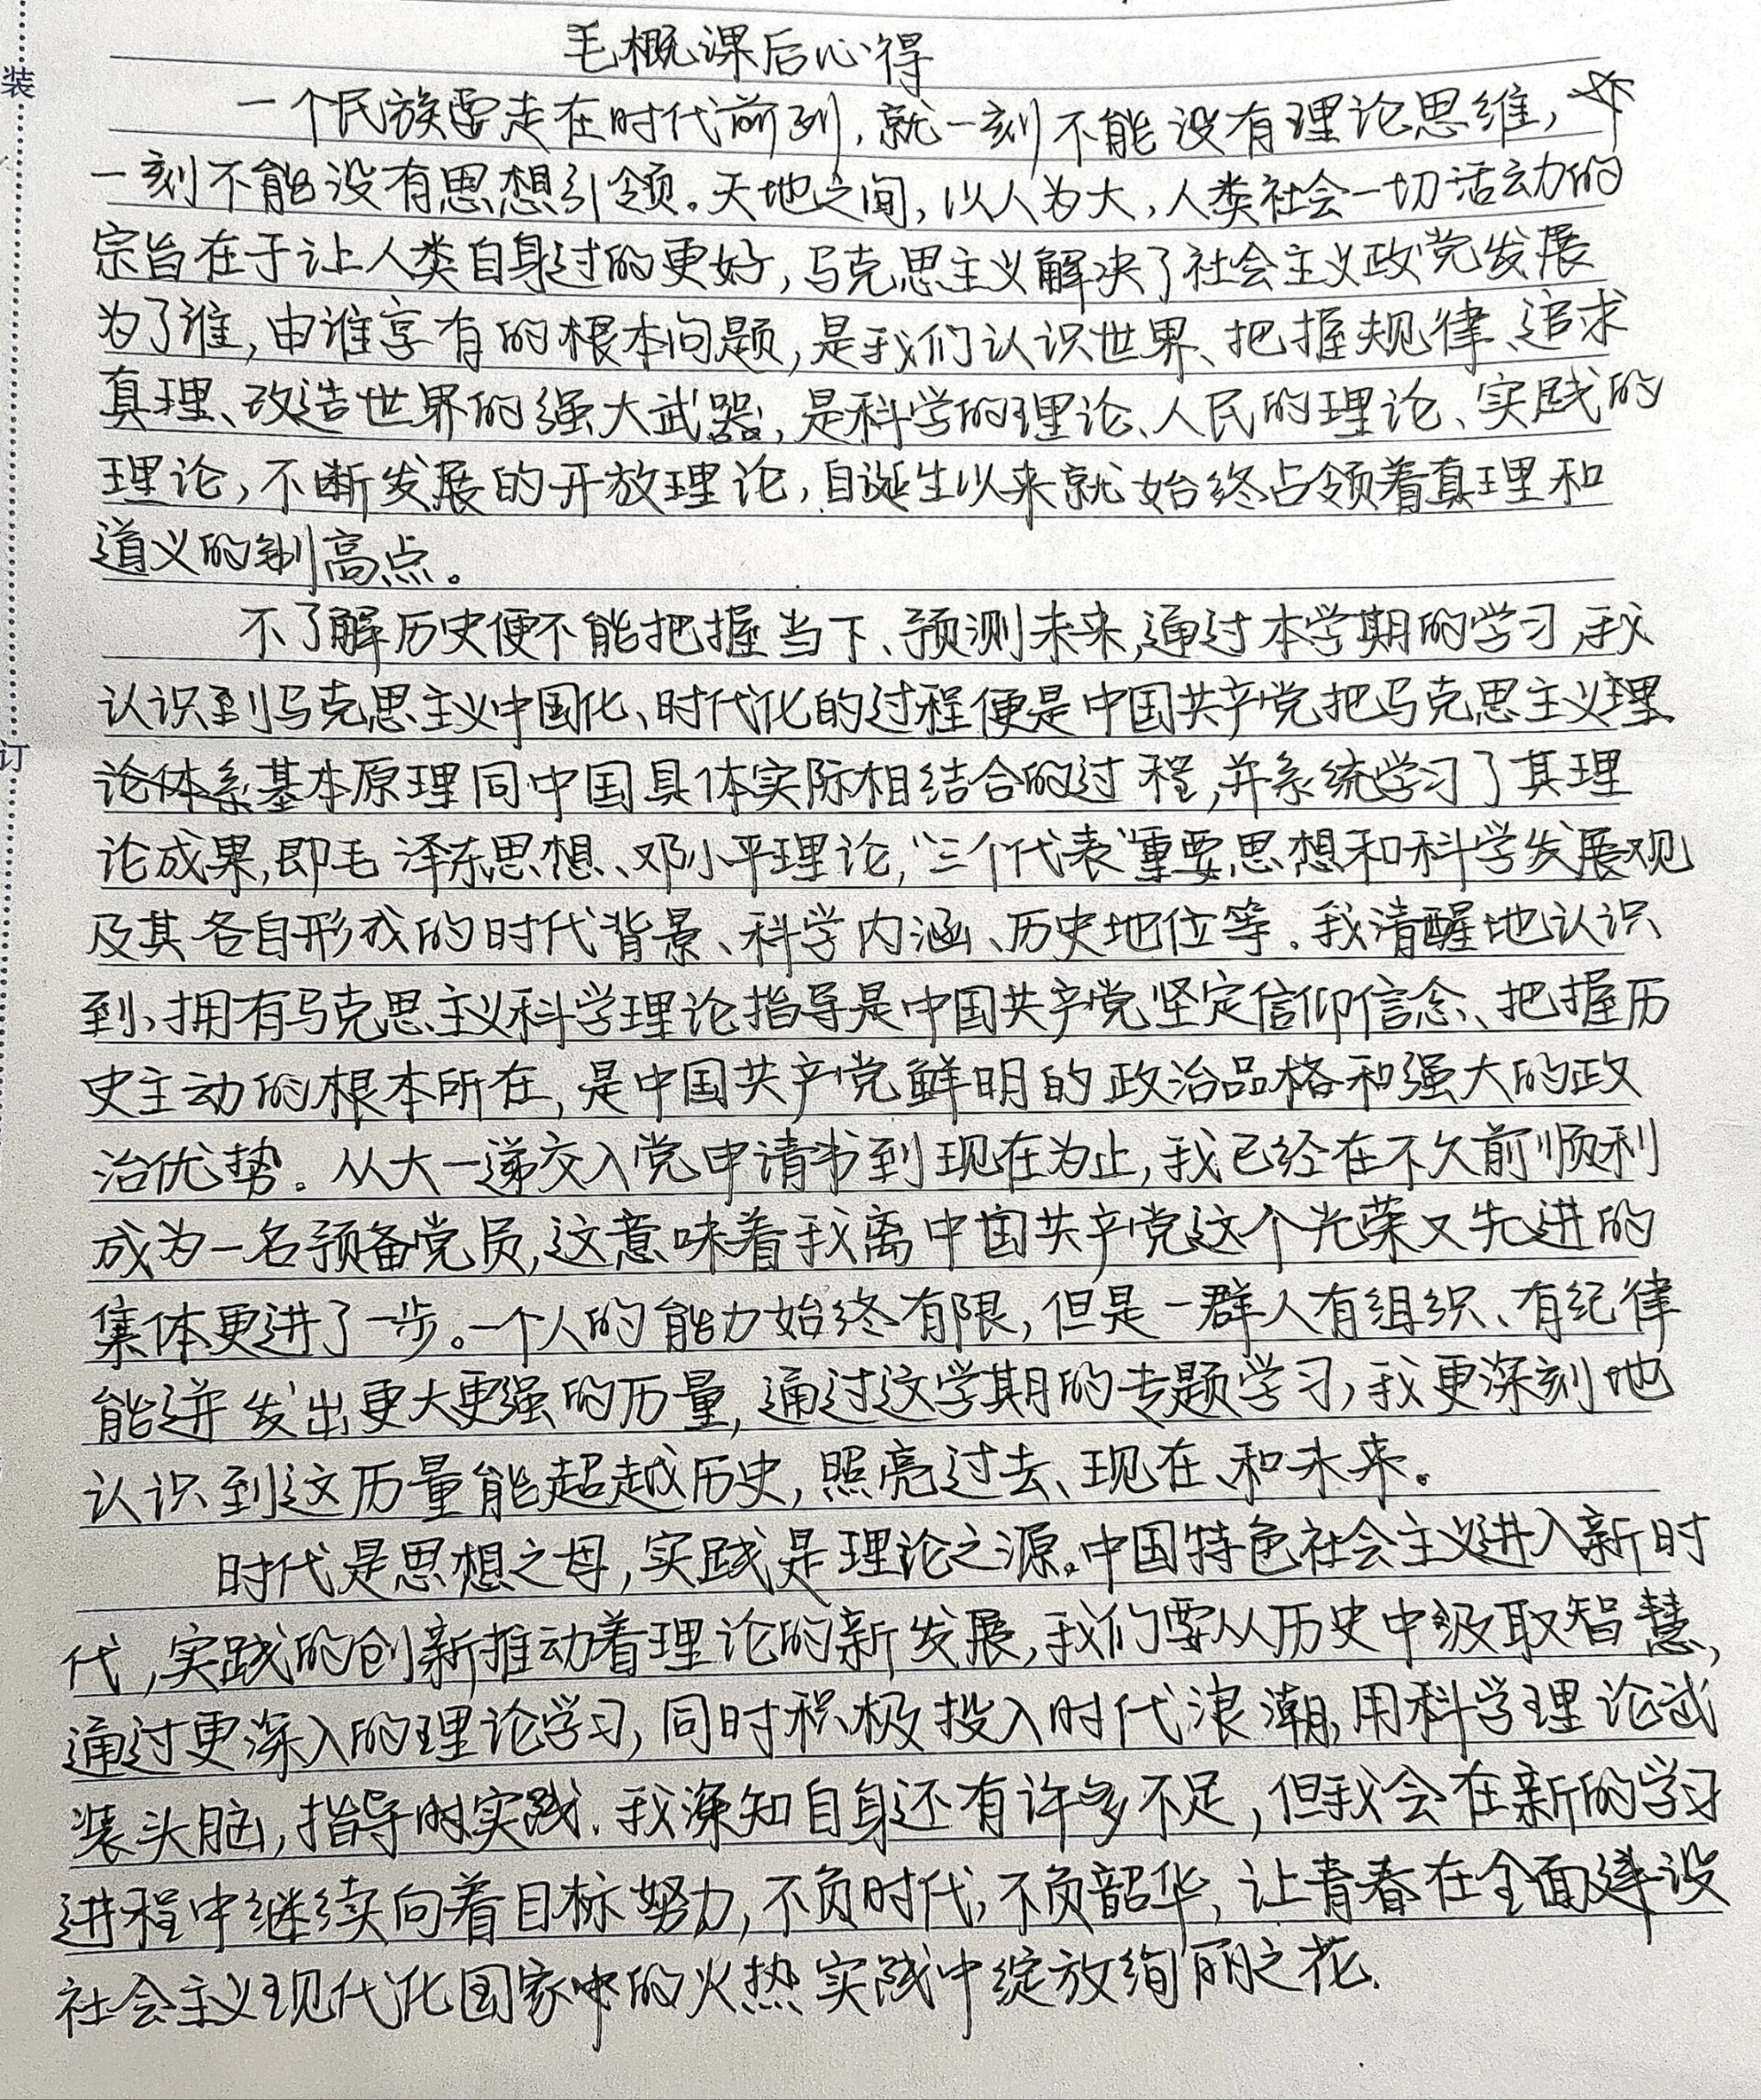 毛概课后心得
一个民族要走在时代前列,就一刻不能没有理论思维,
一刻不能没有思想引领。天地之间,以人为大,人类社会一切活动的
宗旨在于让人类自身过的更好,马克思主义解决了社会主义政党发展
为了谁,由谁享有的根本问题,是我们认识世界、把握规律、追求
真理、改造世界的强大武器,是科学的理论、人民的理论、实践的
理论,不断发展的开放理论,自诞生以来就始终占领着真理和
道义的制高点。
不了解历史便不能把握当下、预测未来,通过本学期的学习,我
认识到马克思主义中国化、时代化的过程便是中国共产党把马克思主义理
论体系基本原理同中国具体实际相结合的过程,并系统学习了其理
论成果,即毛泽东思想、邓小平理论,“三个代表”重要思想和科学发展观
及其各自形成的时代背景、科学内涵、历史地位等.我清醒地认识
到,拥有马克思主义科学理论指导是中国共产党坚定信仰信念、把握历
史主动的根本所在,是中国共产党鲜明的政治品格和强大的政
治优势。从大一递交入党申请书到现在为止,我已经在不久前顺利
成为一名预备党员,这意味着我离中国共产党这个光荣又先进的
集体更进了一步。一个人的能力始终有限,但是一群人有组织、有纪律
能迸发出更大更强的历量,通过这学期的专题学习,我更深刻地
认识到这历量能超越历史,照亮过去、现在、和未来。
时代是思想之母,实践是理论之源。中国特色社会主义进入新时
代,实践的创新推动着理论的新发展,我们要从历史中级取智慧,
通过更深入的理论学习,同时积极投入时代浪潮,用科学理论武
装头脑,指导实践.我深知自身还有许多不足,但我会在新的学习
进程中继续向着目标努力,不负时代,不负韶华,让青春在全面建设
社会主义现代化国家的火热实践中绽放绚丽之花.
装
订